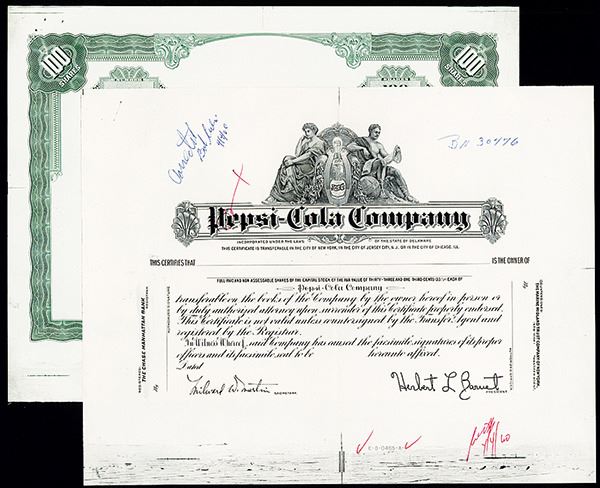 100
SHARES
100
SHARES
100
Correct
BN 30476
PEPSI
Pepsi-Cola Company
INCORPORATED UNDER THE LAWS OF THE STATE OF DELAWARE
THIS CERTIFICATE IS TRANSFERABLE IN THE CITY OF NEW YORK, IN THE CITY OF JERSEY CITY, N.J. OR IN THE CITY OF CHICAGO, ILL.
THIS CERTIFIES THAT IS THE OWNER OF
FULL PAID AND NON ASSESSABLE SHARES OF THE CAPITAL STOCK OF THE PAR VALUE OF THIRTY-THREE AND ONE THIRD CENTS (33⅓¢) EACH OF
Pepsi-Cola Company
transferable on the books of the Company by the owner hereof in person or
by duly authorized attorney upon surrender of this Certificate properly endorsed.
This Certificate is not valid unless countersigned by the Transfer Agent and
registered by the Registrar.
In Witness Whereof, said Company has caused the facsimile signature of its proper
officers and its facsimile seal to be hereunto affixed.
Dated
Milward W. Martin
SECRETARY.
Herbert L Barnet
PRESIDENT
REGISTERED:
THE CHASE MANHATTAN BANK
REGISTRAR
By
AUTHORIZED SIGNATURE
By
E-8-0465-A
100